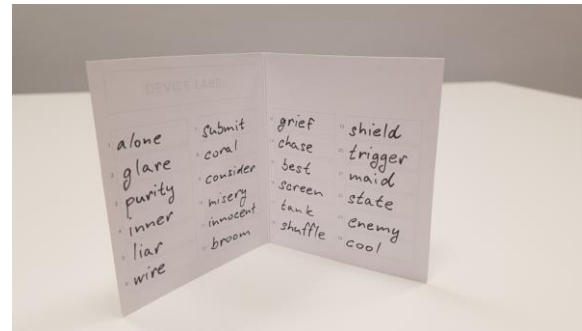 DEVICE LABEL
alone
glare
purity
inner
liar
wire
submit
coral
consider
misery
innocent
broom
grief
chase
best
screen
tank
shuffle
shield
trigger
maid
state
enemy
cool